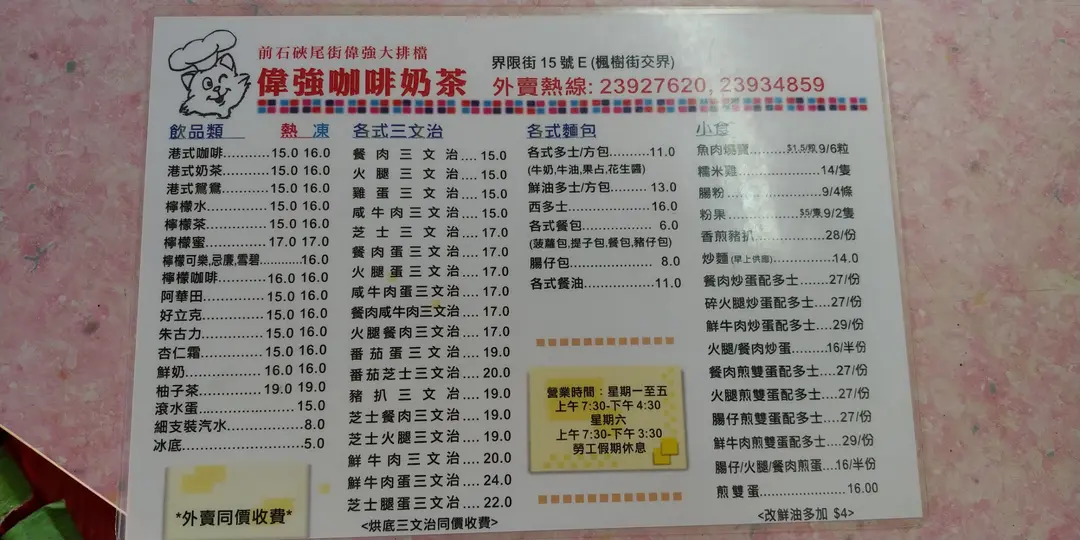 前石硤尾街偉強大排檔
偉強咖啡奶茶
界限街15號E(楓樹街交界)
外賣熱線: 23927620, 23934859
飲品類 熱 凍
港式咖啡...........15.0 16.0
港式奶茶...........15.0 16.0
港式鴛鴦...........15.0 16.0
檸檬水..............15.0 16.0
檸檬茶..............15.0 16.0
檸檬蜜..............17.0 17.0
檸檬可樂,忌廉,雪碧..........16.0
檸檬咖啡...........16.0 16.0
阿華田..............15.0 16.0
好立克..............15.0 16.0
朱古力..............15.0 16.0
杏仁霜..............15.0 16.0
鮮奶.................16.0 16.0
柚子茶..............19.0 19.0
滾水蛋......................15.0
細支裝汽水.................8.0
冰底..........................5.0
*外賣同價收費*
各式三文治
餐肉三文治....15.0
火腿三文治....15.0
雞蛋三文治....15.0
咸牛肉三文治....15.0
芝士三文治....17.0
餐肉蛋三文治....17.0
火腿蛋三文治....17.0
咸牛肉蛋三文治....17.0
餐肉咸牛肉三文治....17.0
火腿餐肉三文治....17.0
番茄蛋三文治....19.0
番茄芝士三文治....20.0
豬扒三文治....19.0
芝士餐肉三文治....19.0
芝士火腿三文治....19.0
鮮牛肉三文治....20.0
鮮牛肉蛋三文治....24.0
芝士腿蛋三文治....22.0
<烘底三文治同價收費>
各式麵包
各式多士/方包..........11.0
(牛奶,牛油,果占,花生醬)
鮮油多士/方包.......... 13.0
西多士..................... 16.0
各式餐包.................. 6.0
(菠蘿包,提子包,餐包,豬仔包)
腸仔包..................... 8.0
各式餐油..................11.0
營業時間：星期一至五
上午7:30-下午4:30
星期六
上午7:30-下午3:30
勞工假期休息
小食
魚肉燒賣.........$1.5/粒 9/6粒
糯米雞....................14/隻
腸粉.......................9/4條
粉果..............$5/隻,9/2隻
香煎豬扒................28/份
炒麵(早上供應)..............14.0
餐肉炒蛋配多士.......27/份
碎火腿炒蛋配多士....27/份
鮮牛肉炒蛋配多士....29/份
火腿/餐肉炒蛋........16/半份
餐肉煎雙蛋配多士....27/份
火腿煎雙蛋配多士....27/份
腸仔煎雙蛋配多士....27/份
鮮牛肉煎雙蛋配多士...29/份
腸仔/火腿/餐肉煎蛋...16/半份
煎雙蛋......................16.00
<改鮮油多加 $4>